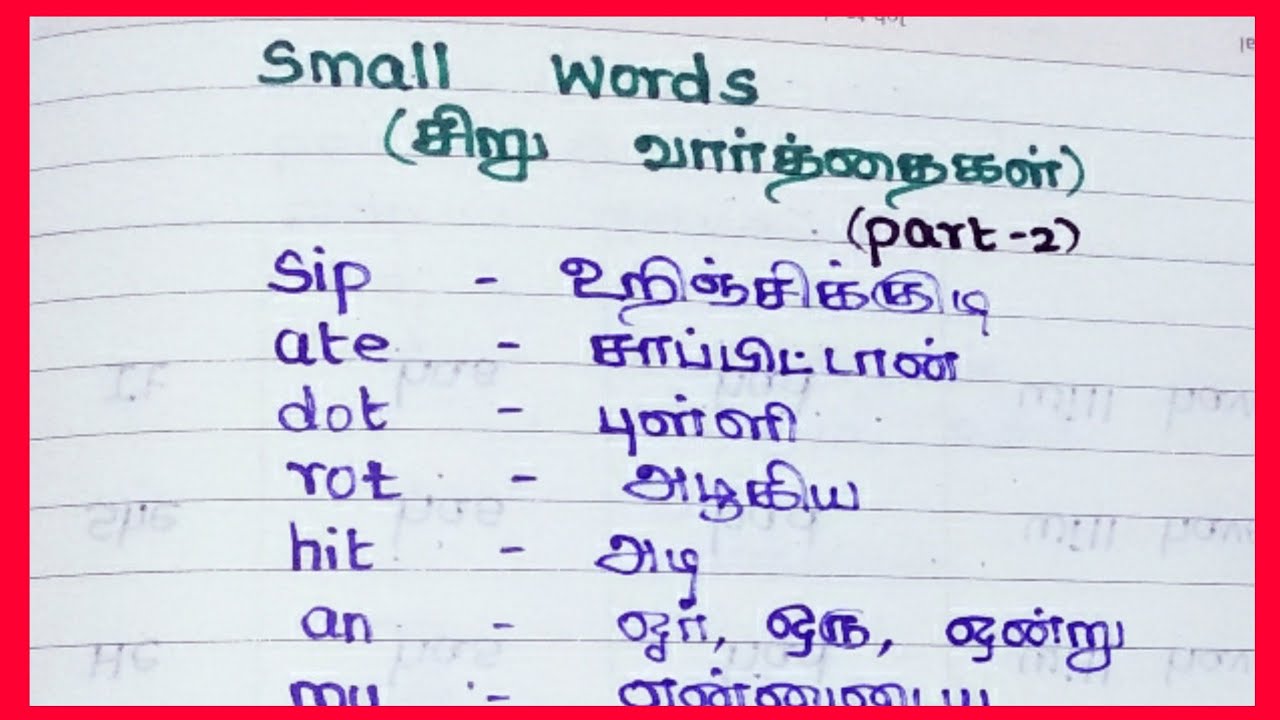 Small Words
(சிறு வார்த்தைகள்)
(part-2)
Sip - உறிஞ்சிக்குடி
ate - சாப்பிட்டான்
dot - புள்ளி
rot - அழுகிய
hit - அடி
an - ஓர், ஒரு, ஒன்று
my - என்னுடைய